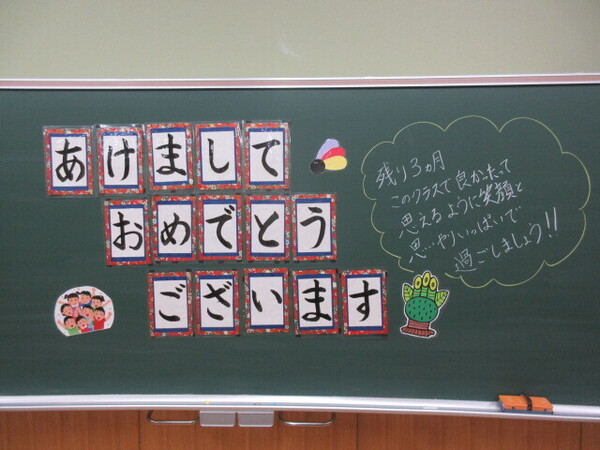 あけまして
おめでとう
ございます
残り3ヵ月
このクラスで良かったって
思えるように笑顔と
思いやりいっぱいで
過ごしましょう!!